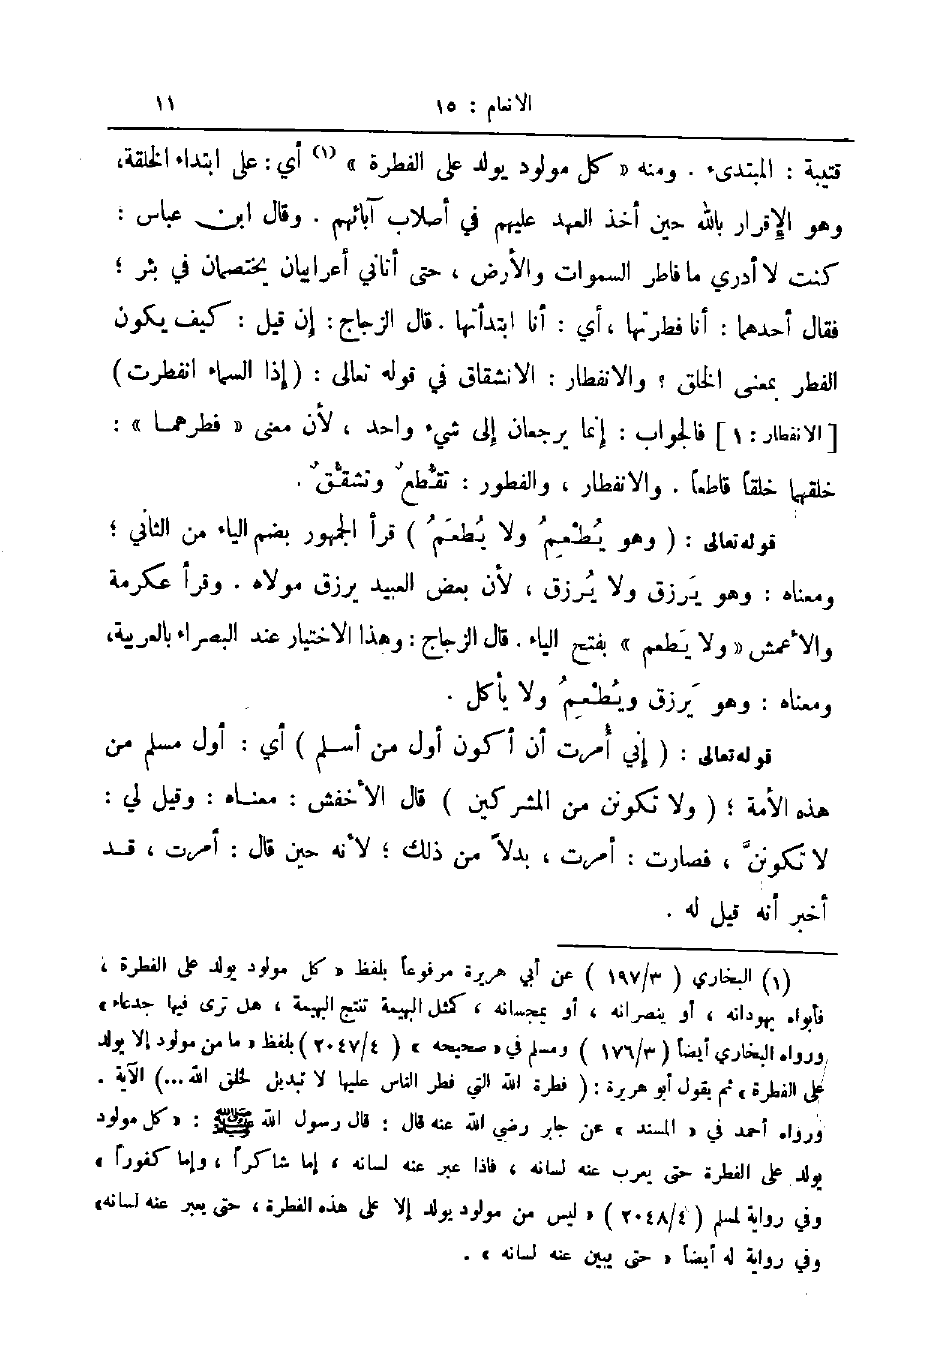 الانعام : ١٥ ١١
قتيبة : المبتدىء . ومنه « كل مولود يولد على الفطرة » (١) أي : على ابتداء الخلقة،
وهو الإقرار بالله حين أخذ العهد عليهم في أصلاب آبائهم . وقال ابن عباس :
كنت لا أدري ما فاطر السموات والأرض ، حتى أتاني أعرابيان يختصمان في بئر ؛
فقال أحدهما : أنا فطرتها ، أي : أنا ابتدأتها . قال الزجاج : إن قيل : كيف يكون
الفطر بمعنى الخلق ؟ والانفطار : الانشقاق في قوله تعالى : ( إذا السماء انفطرت )
[ الانفطار : ١ ] فالجواب : إنما يرجعان إلى شيء واحد ، لأن معنى « فطرهما » :
خلقهما خلقاً قاطعاً . والانفطار ، والفطور : تقطُّعٌ وتشقُّقٌ .
قوله تعالى : ( وهو يُطْعِمُ ولا يُطعَمُ ) قرأ الجمهور بضم الياء من الثاني ؛
ومعناه : وهو يَرزق ولا يُرزق ، لأن بعض العبيد يرزق مولاه . وقرأ عكرمة
والأعمش « ولا يَطعم » بفتح الياء . قال الزجاج : وهذا الاختيار عند البصراء بالعربية،
ومعناه : وهو يَرزق ويُطْعِمُ ولا يأكل .
قوله تعالى : ( إني أُمرت أن أكون أول من أسلم ) أي : أول مسلم من
هذه الأمة ؛ ( ولا تكونن من المشركين ) قال الأخفش : معناه : وقيل لي :
لا تكوننَّ ، فصارت : أمرت ، بدلاً من ذلك ؛ لأنه حين قال : أمرت ، قد
أخبر أنه قيل له .
(١) البخاري ( ١٩٧/٣ ) عن أبي هريرة مرفوعاً بلفظ « كل مولود يولد على الفطرة ،
فأبواه يهودانه ، أو ينصرانه ، أو يمجسانه ، كمثل البهيمة تنتج البهيمة ، هل ترى فيها جدعاء »
ورواه البخاري أيضاً ( ١٧٦/٣ ) ومسلم في « صحيحه » ( ٢٠٤٧/٤ ) بلفظ « ما من مولود إلا يولد
على الفطرة » ثم يقول أبو هريرة : ( فطرة الله التي فطر الناس عليها لا تبديل لخلق الله ...) الآية .
ورواه أحمد في « المسند » عن جابر رضي الله عنه قال : قال رسول الله ﷺ : « كل مولود
يولد على الفطرة حتى يعرب عنه لسانه ، فاذا عبر عنه لسانه ، إما شاكراً ، وإما كفوراً »
وفي رواية لمسلم ( ٢٠٤٨/٤ ) « ليس من مولود يولد إلا على هذه الفطرة ، حتى يعبر عنه لسانه»
وفي رواية له أيضاً « حتى يبين عنه لسانه » .